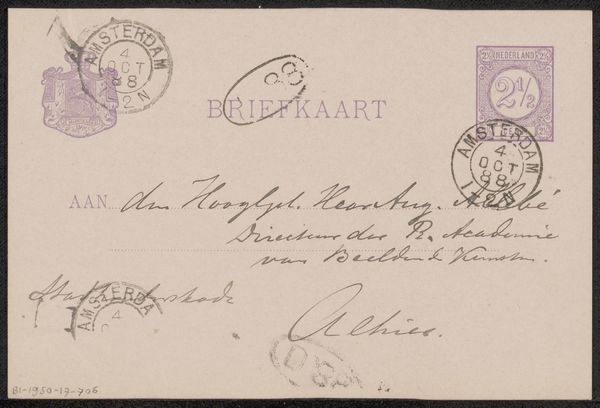 AMSTERDAM
4
OCT
88
12N
88
NEDERLAND
2½
BRIEFKAART
AMSTERDAM
4
OCT
88
1 2N
AAN den Hooggel. Heer Aug. Allebé
Directeur der R. Academie
van Beeldende Kunsten
Stadhouderskade
AMSTERDA
4
Alhier.
D
BI-1950-17-706